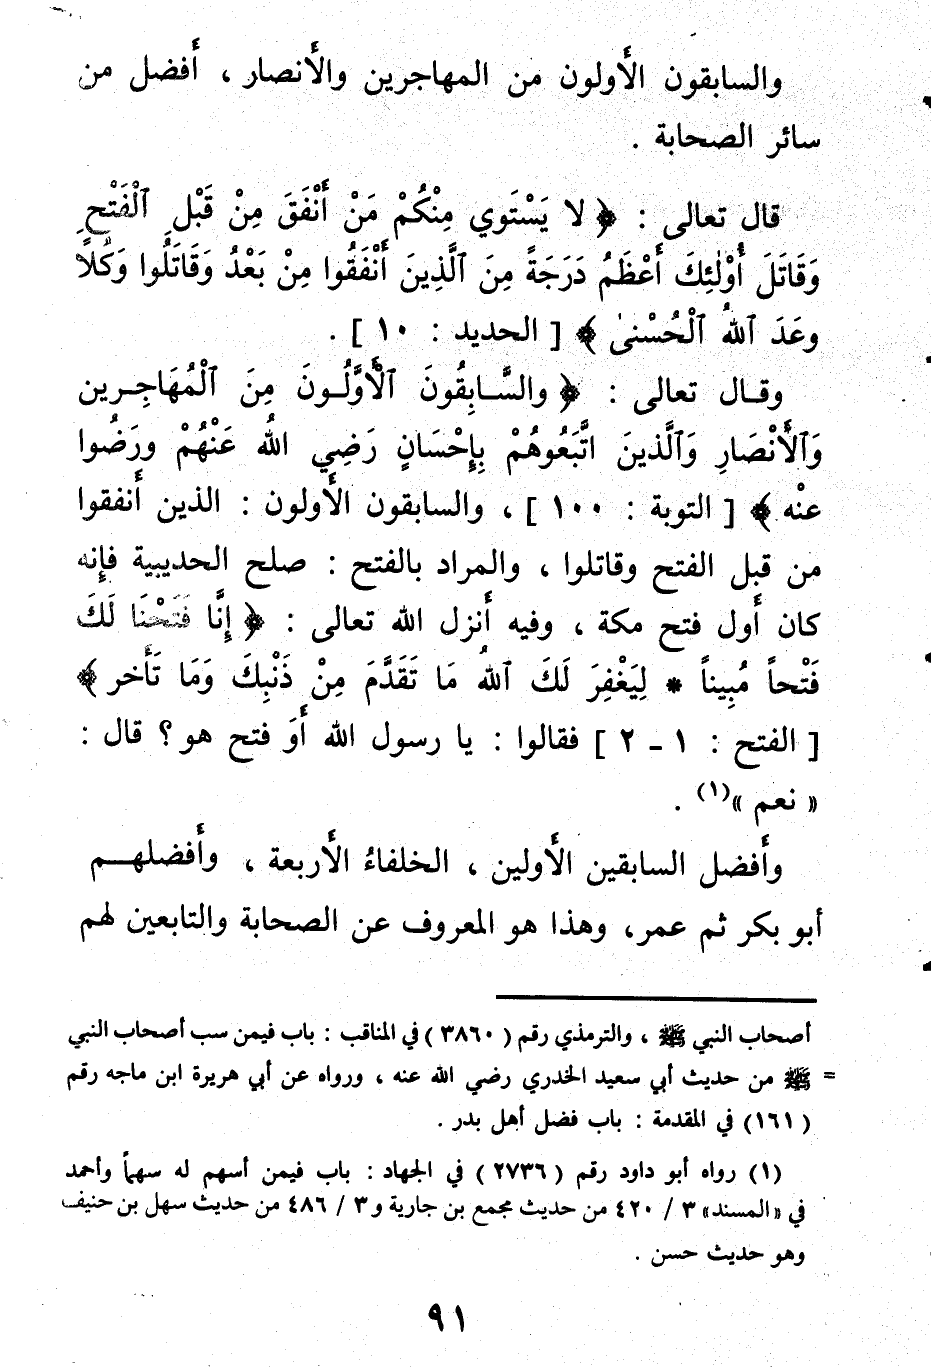 والسابقون الأَولون من المهاجرين والأَنصار ، أَفضل من
سائر الصحابة .
قال تعالى : ﴿ لا يَسْتَوي مِنْكُمْ مَنْ أَنْفَقَ مِنْ قَبْلِ ٱلْفَتْحِ
وَقَاتَلَ أُوْلٰئِكَ أَعْظَمُ دَرَجَةً مِنَ ٱلَّذِينَ أَنْفَقُوا مِنْ بَعْدُ وَقَاتَلُوا وَكُلاًّ
وعَدَ ٱللهُ ٱلْحُسْنىٰ ﴾ [ الحديد : ١٠ ] .
وقـال تعالى : ﴿ والسَّـابِقُونَ ٱلْأَوَّلُـونَ مِنَ ٱلْمُهَاجِـرين
وَٱلأَنْصَارِ وَٱلَّذينَ اتَّبَعُوهُمْ بِإِحْسَانٍ رَضِي اللهُ عَنْهُمْ ورَضُوا
عنْه ﴾ [ التوبة : ١٠٠ ] ، والسابقون الأَولون : الذين أَنفقوا
من قبل الفتح وقاتلوا ، والمراد بالفتح : صلح الحديبية فإِنه
كان أَول فتح مكة ، وفيه أَنزل الله تعالى : ﴿ إِنَّا فَتَحْنَا لَكَ
فَتْحاً مُبِيناً * لِيَغْفِرَ لَكَ ٱللهُ مَا تَقَدَّمَ مِنْ ذَنْبِكَ وَمَا تَأَخر ﴾
[ الفتح : ١ ـ ٢ ] فقالوا : يا رسول الله أَوَ فتح هو ؟ قال :
« نعم »(١) .
وأَفضل السابقين الأَولين ، الخلفاءُ الأَربعة ، وأَفضلهـــم
أبو بكر ثم عمر، وهذا هو المعروف عن الصحابة والتابعين لهم
أصحاب النبي ﷺ ، والترمذي رقم ( ٣٨٦٠ ) في المناقب : باب فيمن سب أصحاب النبي
= ﷺ من حديث أبي سعيد الخدري رضي الله عنه ، ورواه عن أبي هريرة ابن ماجه رقم
( ١٦١ ) في المقدمة : باب فضل أهل بدر .
(١) رواه أبو داود رقم ( ٢٧٣٦ ) في الجهاد : باب فيمن أسهم له سهماً وأحمد
في «المسند» ٣ / ٤٢٠ من حديث مجمع بن جارية و ٣ / ٤٨٦ من حديث سهل بن حنيف
وهو حديث حسن .
٩١